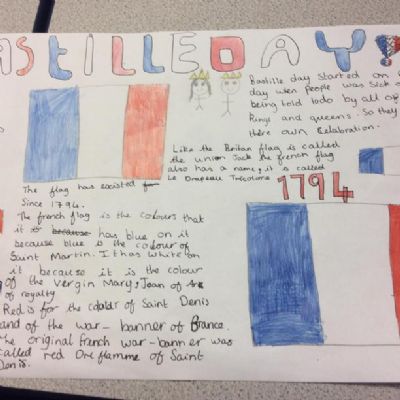 ASTILLE DAY
Bastille day started on
day when People was sick o
being told todo by all o
Kings and queens. So they
there own Celabration.
Like the Britan flag is called
the union Jack the french flag
also has a name, it is called
Le Drapeau Tricolore
1794
The flag has existed for
Since 1794.
The french flag is the colours that
it is because has blue on it
because blue is the colour of
Saint Martin. It has white on
it because it is the colour
of the vergin Mary, Joan of
of royalty
Red is for the colour of Saint Denis
and of the war-banner of France.
The original french war-banner was
called red Oriflamme of Saint
Denis.